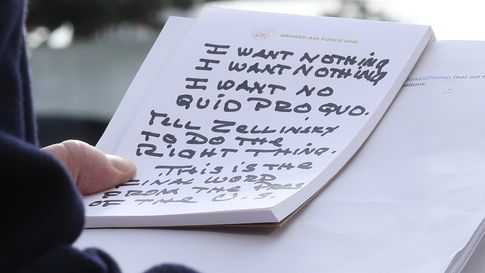 ABOARD AIR FORCE ONE
I WANT NOTHING
I WANT NOTHING
I WANT NO
QUID PRO QUO.
TELL ZELLINSKY
TO DO THE
RIGHT THING.
THIS IS THE
FINAL WORD
FROM THE PRES
OF THE U.S.
onaldTrump, that aid t
ations.